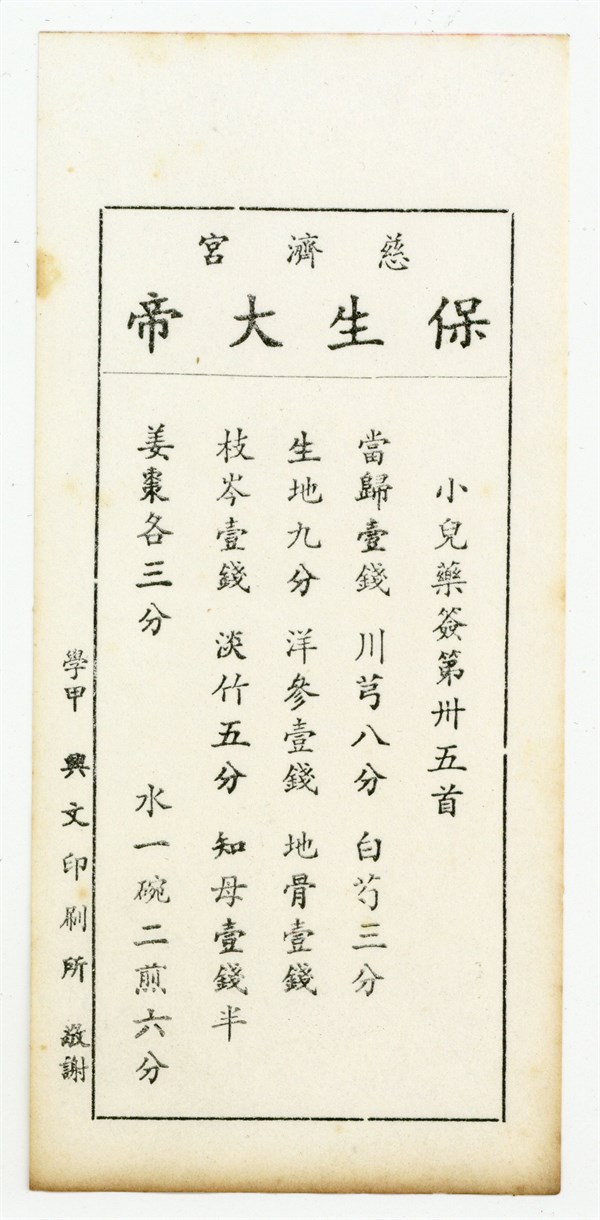 慈濟宮
保生大帝
小兒藥簽第卅五首
當歸壹錢 川芎八分 白芍三分
生地九分 洋參壹錢 地骨壹錢
枝岑壹錢 淡竹五分 知母壹錢半
姜棗各三分 水一碗二煎六分
學甲 興文印刷所 敬謝